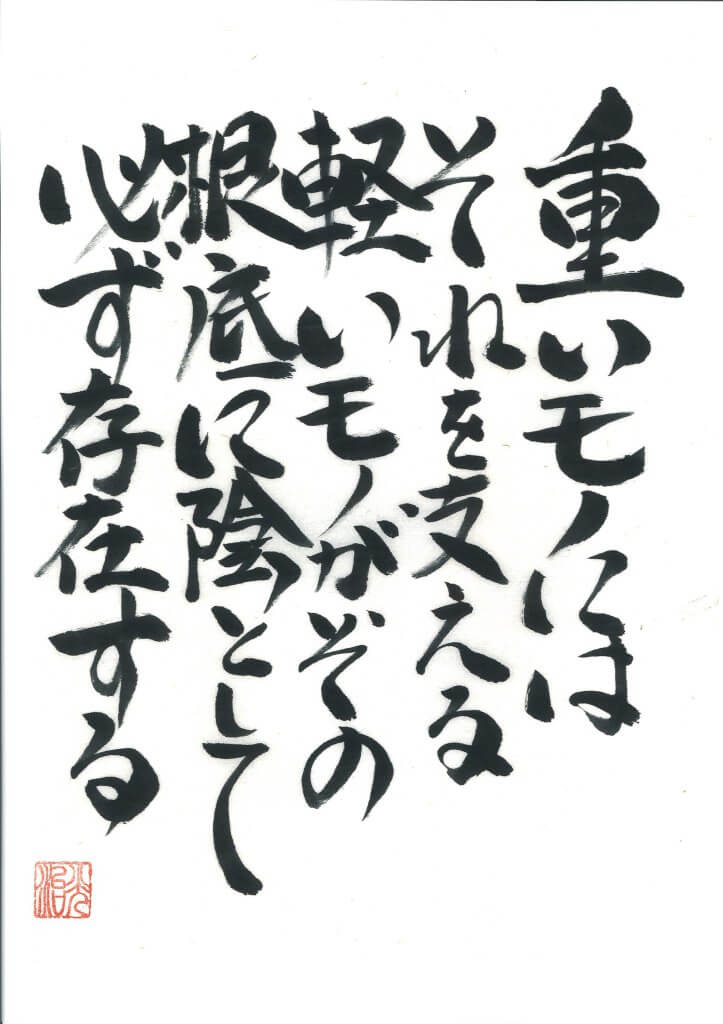 重いモノには
それを支える
軽いモノがその
根底に陰として
必ず存在する